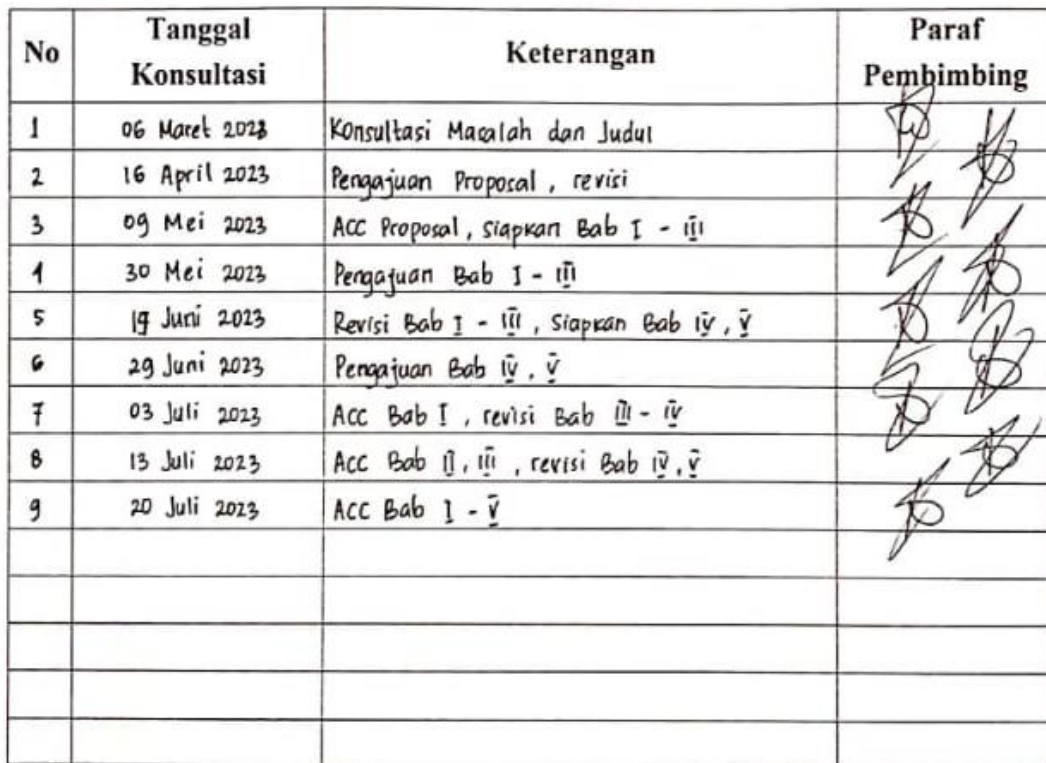 No Tanggal Konsultasi Keterangan Paraf Pembimbing
1 06 Maret 2023 Konsultasi Masalah dan Judul
2 16 April 2023 Pengajuan Proposal, revisi
3 09 Mei 2023 ACC Proposal, siapkan Bab I - III
4 30 Mei 2023 Pengajuan Bab I - III
5 19 Juni 2023 Revisi Bab I - III, Siapkan Bab IV, V
6 29 Juni 2023 Pengajuan Bab IV, V
7 03 Juli 2023 ACC Bab I, revisi Bab III - IV
8 13 Juli 2023 ACC Bab II, III, revisi Bab IV, V
9 20 Juli 2023 ACC Bab I - V